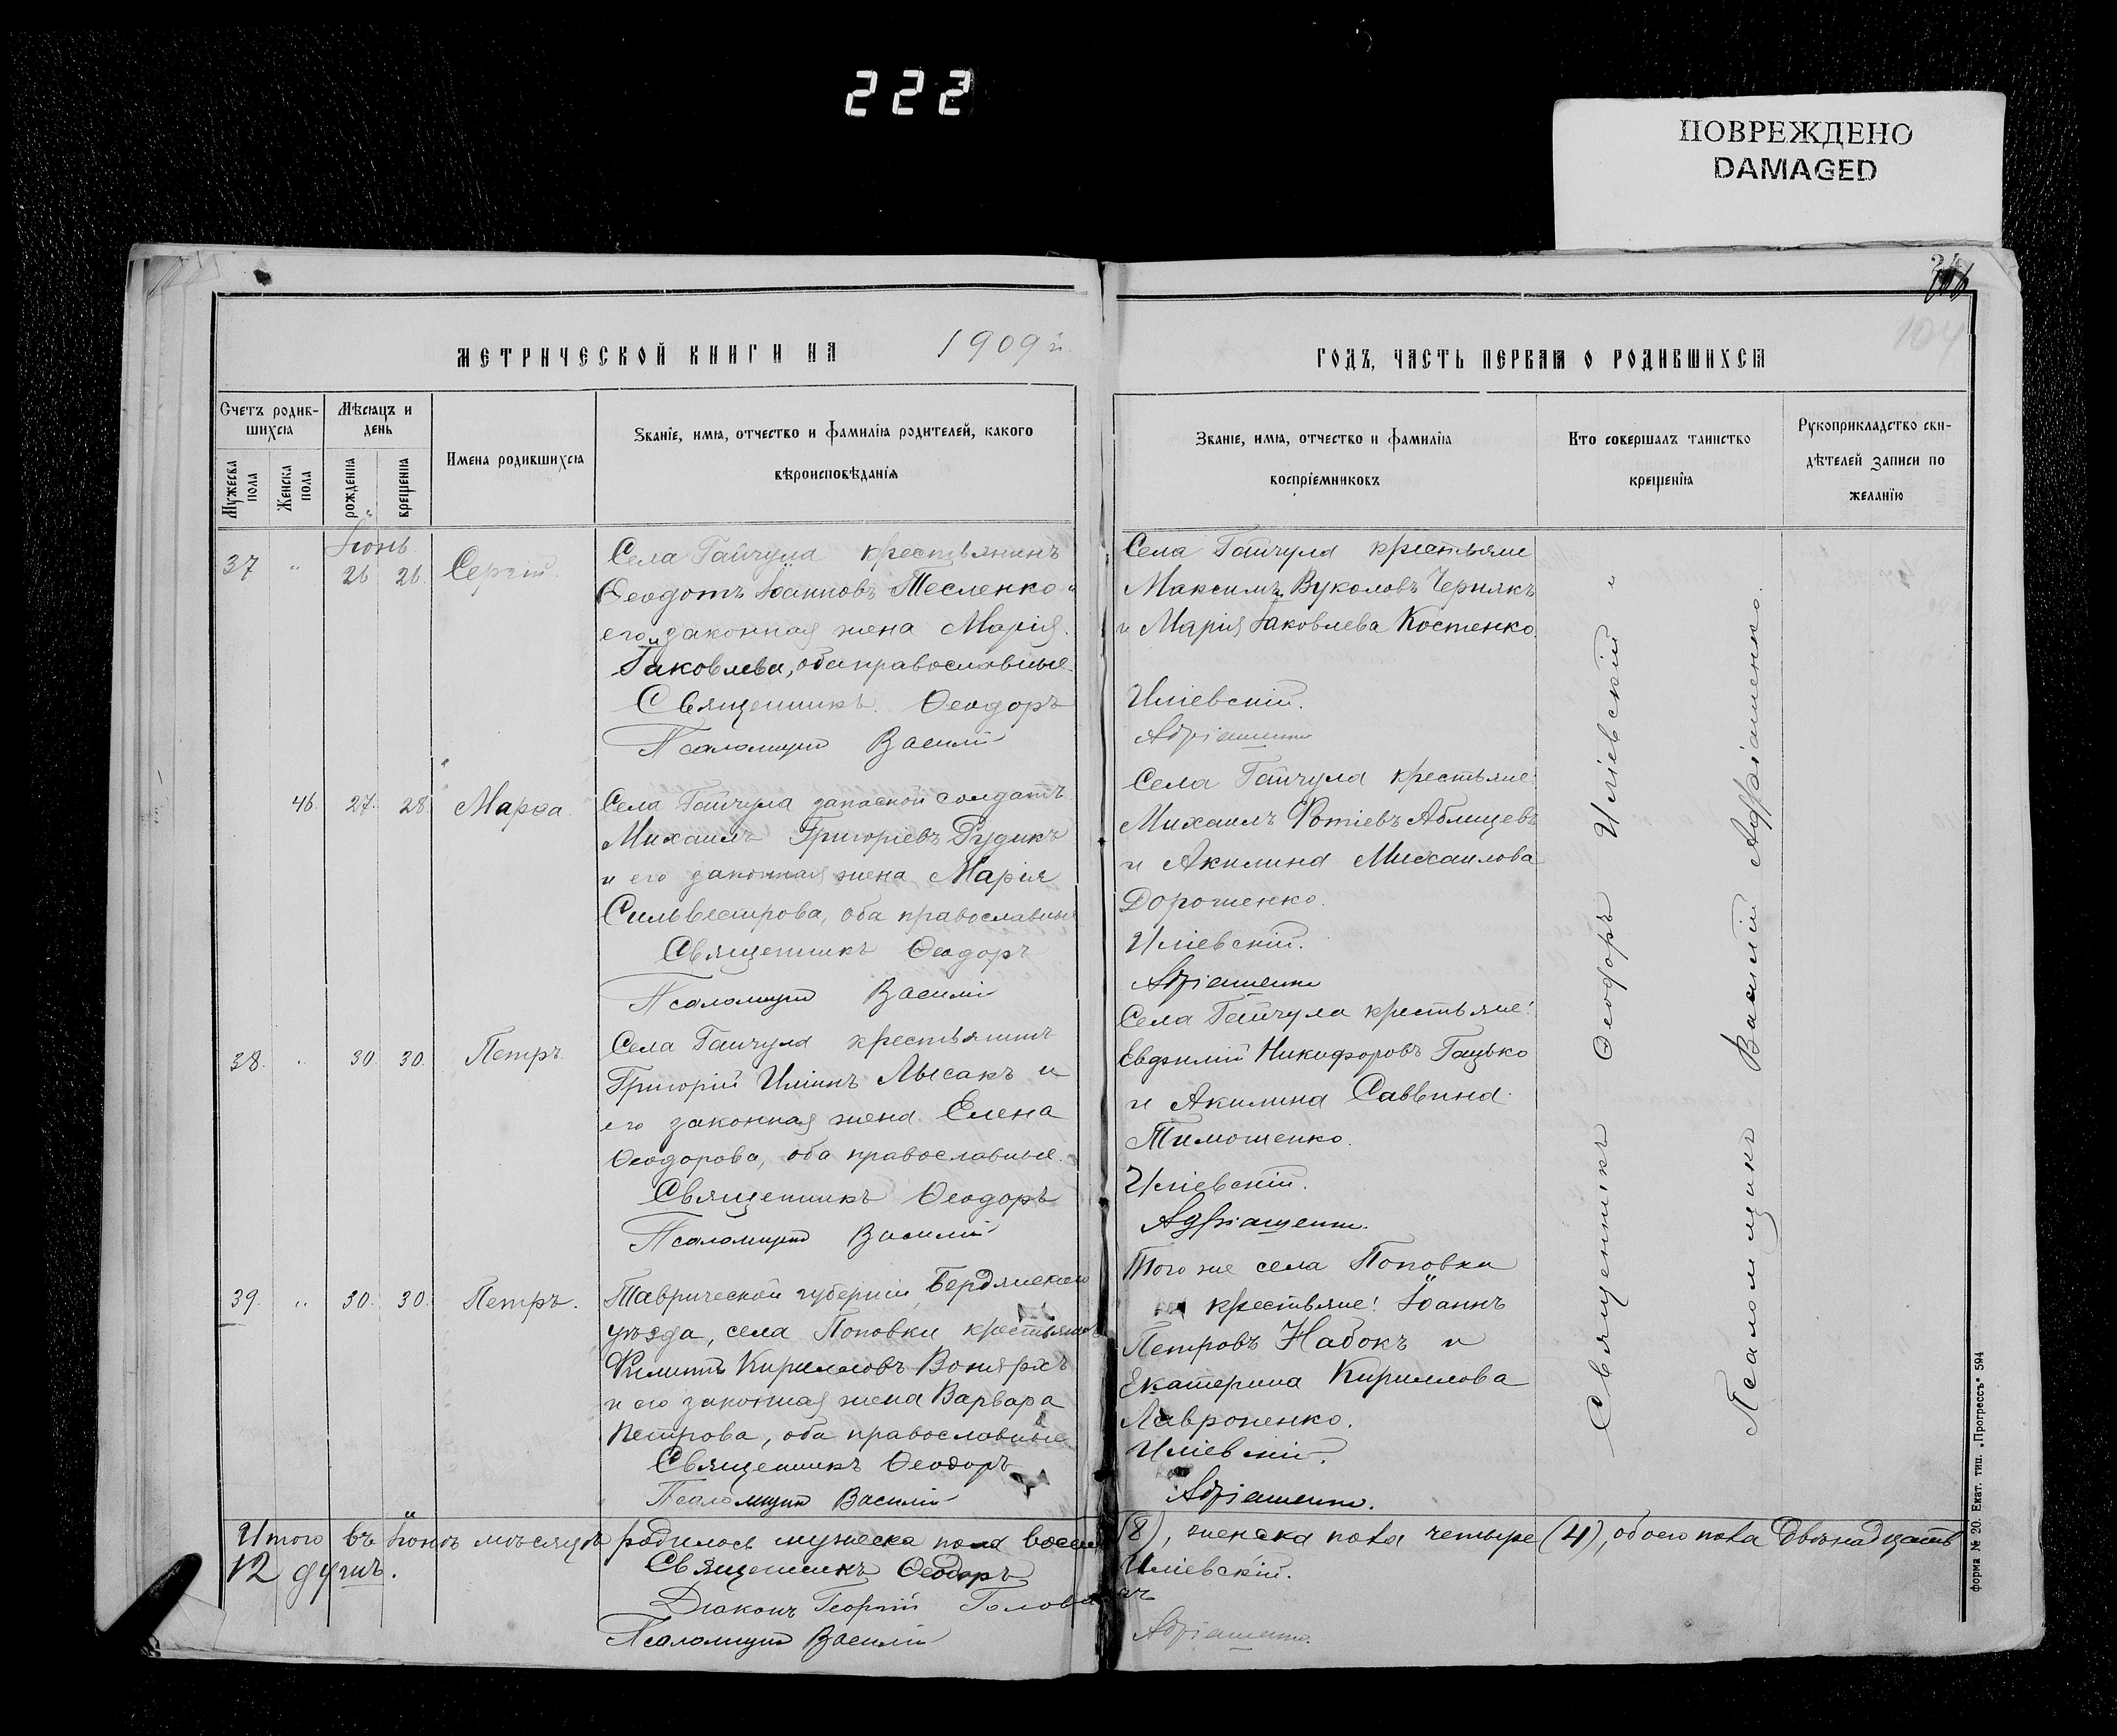 222
ПОВРЕЖДЕНО
DAMAGED
104
МЕТРИЧЕСКОЙ КНИГИ НА 1909 г.
ГОДЪ, ЧАСТЬ ПЕРВАЯ О РОДИВШИХСЯ
Счетъ родившихся
Мужеска пола
Женска пола
Мѣсяцъ и день
рожденія
крещенія
Имена родившихся
Званіе, имя, отчество и фамилія родителей, какого вѣроисповѣданія
Званіе, имя, отчество и фамилія воспріемниковъ
Кто совершалъ таинство крещенія
Рукоприкладство свидѣтелей записи по желанію
Іюнь
37 " 26 26 Сергій.
Села Гайчула крестьянинъ
Ѳеодотъ Іоанновъ Тесленко и
его законная жена Марія
Іаковлева, оба православные
Священникъ Ѳеодоръ
Псаломщикъ Василій
Села Гайчула крестьяне
Максимъ Вуколовъ Чернякъ
и Марія Іаковлева Костенко.
Иліевскій.
Адріашенко
46. 27. 28. Марѳа
Села Гайчула запасной солдатъ
Михаилъ Григоріевъ Рудикъ
и его законная жена Марія
Сильвестрова, оба православные
Священникъ Ѳеодоръ
Псаломщикъ Василій
Села Гайчула крестьяне:
Михаилъ Фотіевъ Аблицевъ
и Акилина Михаилова
Дорошенко.
Иліевскій.
Адріашенко
38. " 30. 30. Петръ.
Села Гайчула крестьянинъ
Григорій Иліинъ Лысакъ и
его законная жена Елена
Ѳеодорова, оба православные.
Священникъ Ѳеодоръ
Псаломщикъ Василій
Села Гайчула крестьяне:
Евфимій Никифоровъ Гацько
и Акилина Саввина
Тимошенко.
Иліевскій.
Адріашенко.
39. " 30. 30. Петръ.
Таврической губерніи, Бердянскаго
уѣзда, села Поповки крестьянинъ
Филиппъ Кирилловъ
и его законная жена Варвара
Петрова, оба православные.
Священникъ Ѳеодоръ
Псаломщикъ Василій
Того же села Поповки
крестьяне: Іоаннъ
Петровъ Набокъ и
Екатерина Кириллова
Лавроненко.
Иліевскій.
Адріашенко.
Священникъ Ѳеодоръ Иліевскій "
Псаломщикъ Василій Адріашенко.
Итого въ Іюнѣ мѣсяцѣ родилось мужеска пола восемь (8), женска пола четыре (4), обоего пола двѣнадцать
12 душъ.
Священникъ Ѳеодоръ Иліевскій.
Діаконъ Георгій
Псаломщикъ Василій Адріашенко.
форма № 20. Екат. тип. „Прогрессъ" 594